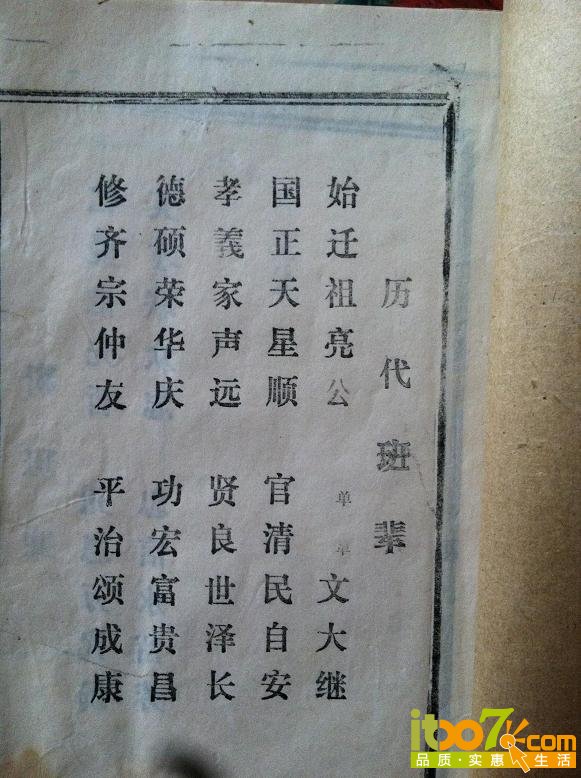 历代班辈
始迁祖亮公 单单文大继
国正天星顺 官清民自安
孝義家声远 贤良世泽长
德硕荣华庆 功宏富贵昌
修齐宗仲友 平治颂成康
itoo7.com
品质·实惠 生活